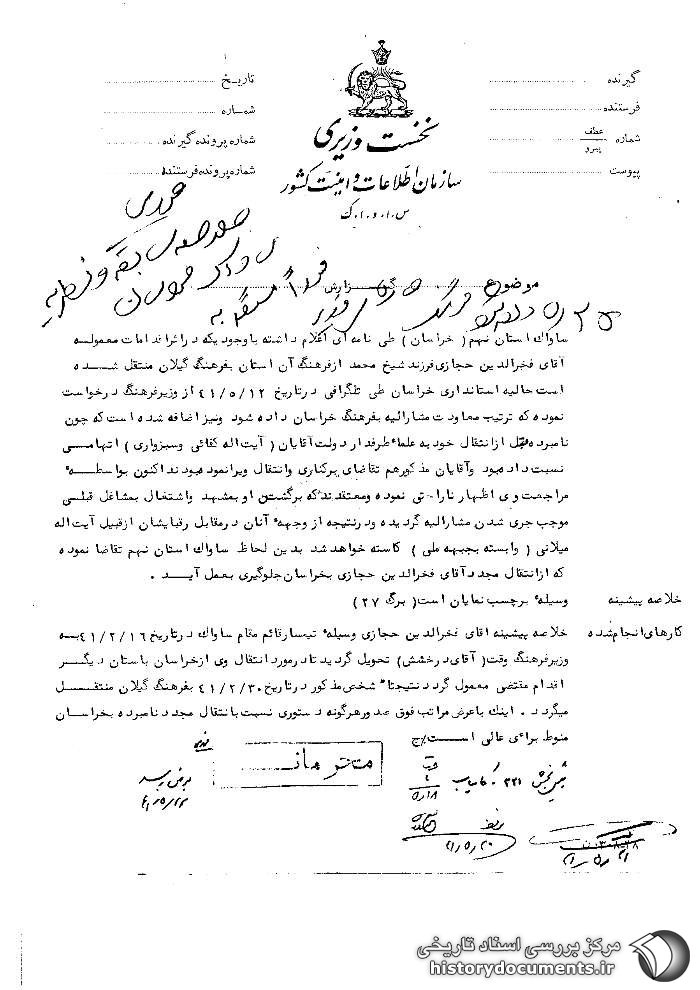 گیرنده
فرستنده
شماره عطف پیرو
پیوست
تاریخ
شماره
شماره پرونده گیرنده
شماره پرونده فرستنده
نخست وزیری
سازمان اطلاعات و امنیت کشور
س.ا.و.ا.ک
موضوع گزارش
ساواک استان نهم ( خراسان ) طی نامه ای اعلام داشته با وجودیکه در اثر اقدامات معموله
آقای فخرالدین حجازی فرزند شیخ محمد از فرهنگ آن استان بفرهنگ گیلان منتقل شده
است حالیه استانداری خراسان طی تلگرافی در تاریخ ۴۱/۵/۱۲ از وزیر فرهنگ درخواست
نموده که ترتیب معاودت مشارالیه بفرهنگ خراسان داده شود ونیز اضافه شده است که چون
نامبرده قبل از انتقال خود به علماء طرفدار دولت آقایان ( آیت اله کفائی وسبزواری ) اتهامی
نسبت داده بود وآقایان مذکور هم تقاضای برکناری وانتقال ویرا نموده بودند اکنون بواسطه
مراجعت وی اظهار ناراحتی نموده ومعتقدند که برگشتن او بمشهد واشتغال بمشاغل قبلی
موجب جری شدن مشارالیه گردیده ودرنتیجه از وجهه آنان در مقابل رقبایشان از قبیل آیت اله
میلانی ( وابسته بجبهه ملی ) کاسته خواهد شد بدین لحاظ ساواک استان نهم تقاضا نموده
که از انتقال مجدد آقای فخرالدین حجازی بخراسان جلوگیری بعمل آید .
خلاصه پیشینه وسیله برچسب نمایان است ( برگ ۲۷ )
کارهای انجام شده خلاصه پیشینه اقای فخرالدین حجازی وسیله تیمسار قائم مقام ساواک در تاریخ ۴۱/۲/۱۶ به
وزیر فرهنگ وقت ( آقای درخشش ) تحویل گردید تا در مورد انتقال وی از خراسان باستان دیگر
اقدام مقتضی معمول گردد نتیجتا شخص مذکور در تاریخ ۴۱/۲/۳۰ بفرهنگ گیلان منتقل
میگردد . اینک با عرض مراتب فوق صدور هرگونه دستوری نسبت با نتقال مجدد نامبرده بخراسان
منوط برای عالی است
محترمانه
بعرض رسید
مرکز بررسی اسناد تاریخی
historydocuments.ir